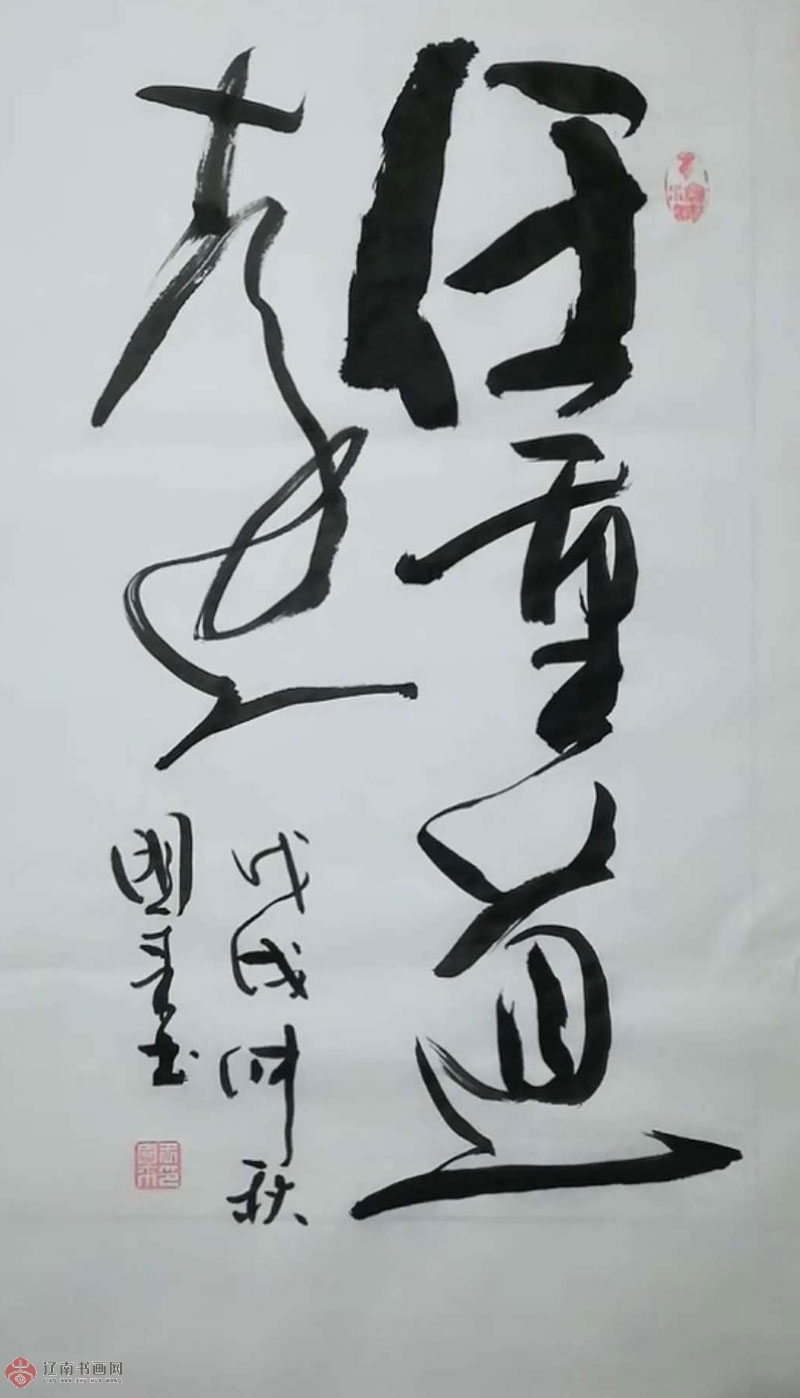 任重道
遠
戊戌仲秋
國书
辽南书画网
LIAO NAN SHU HUA WANG